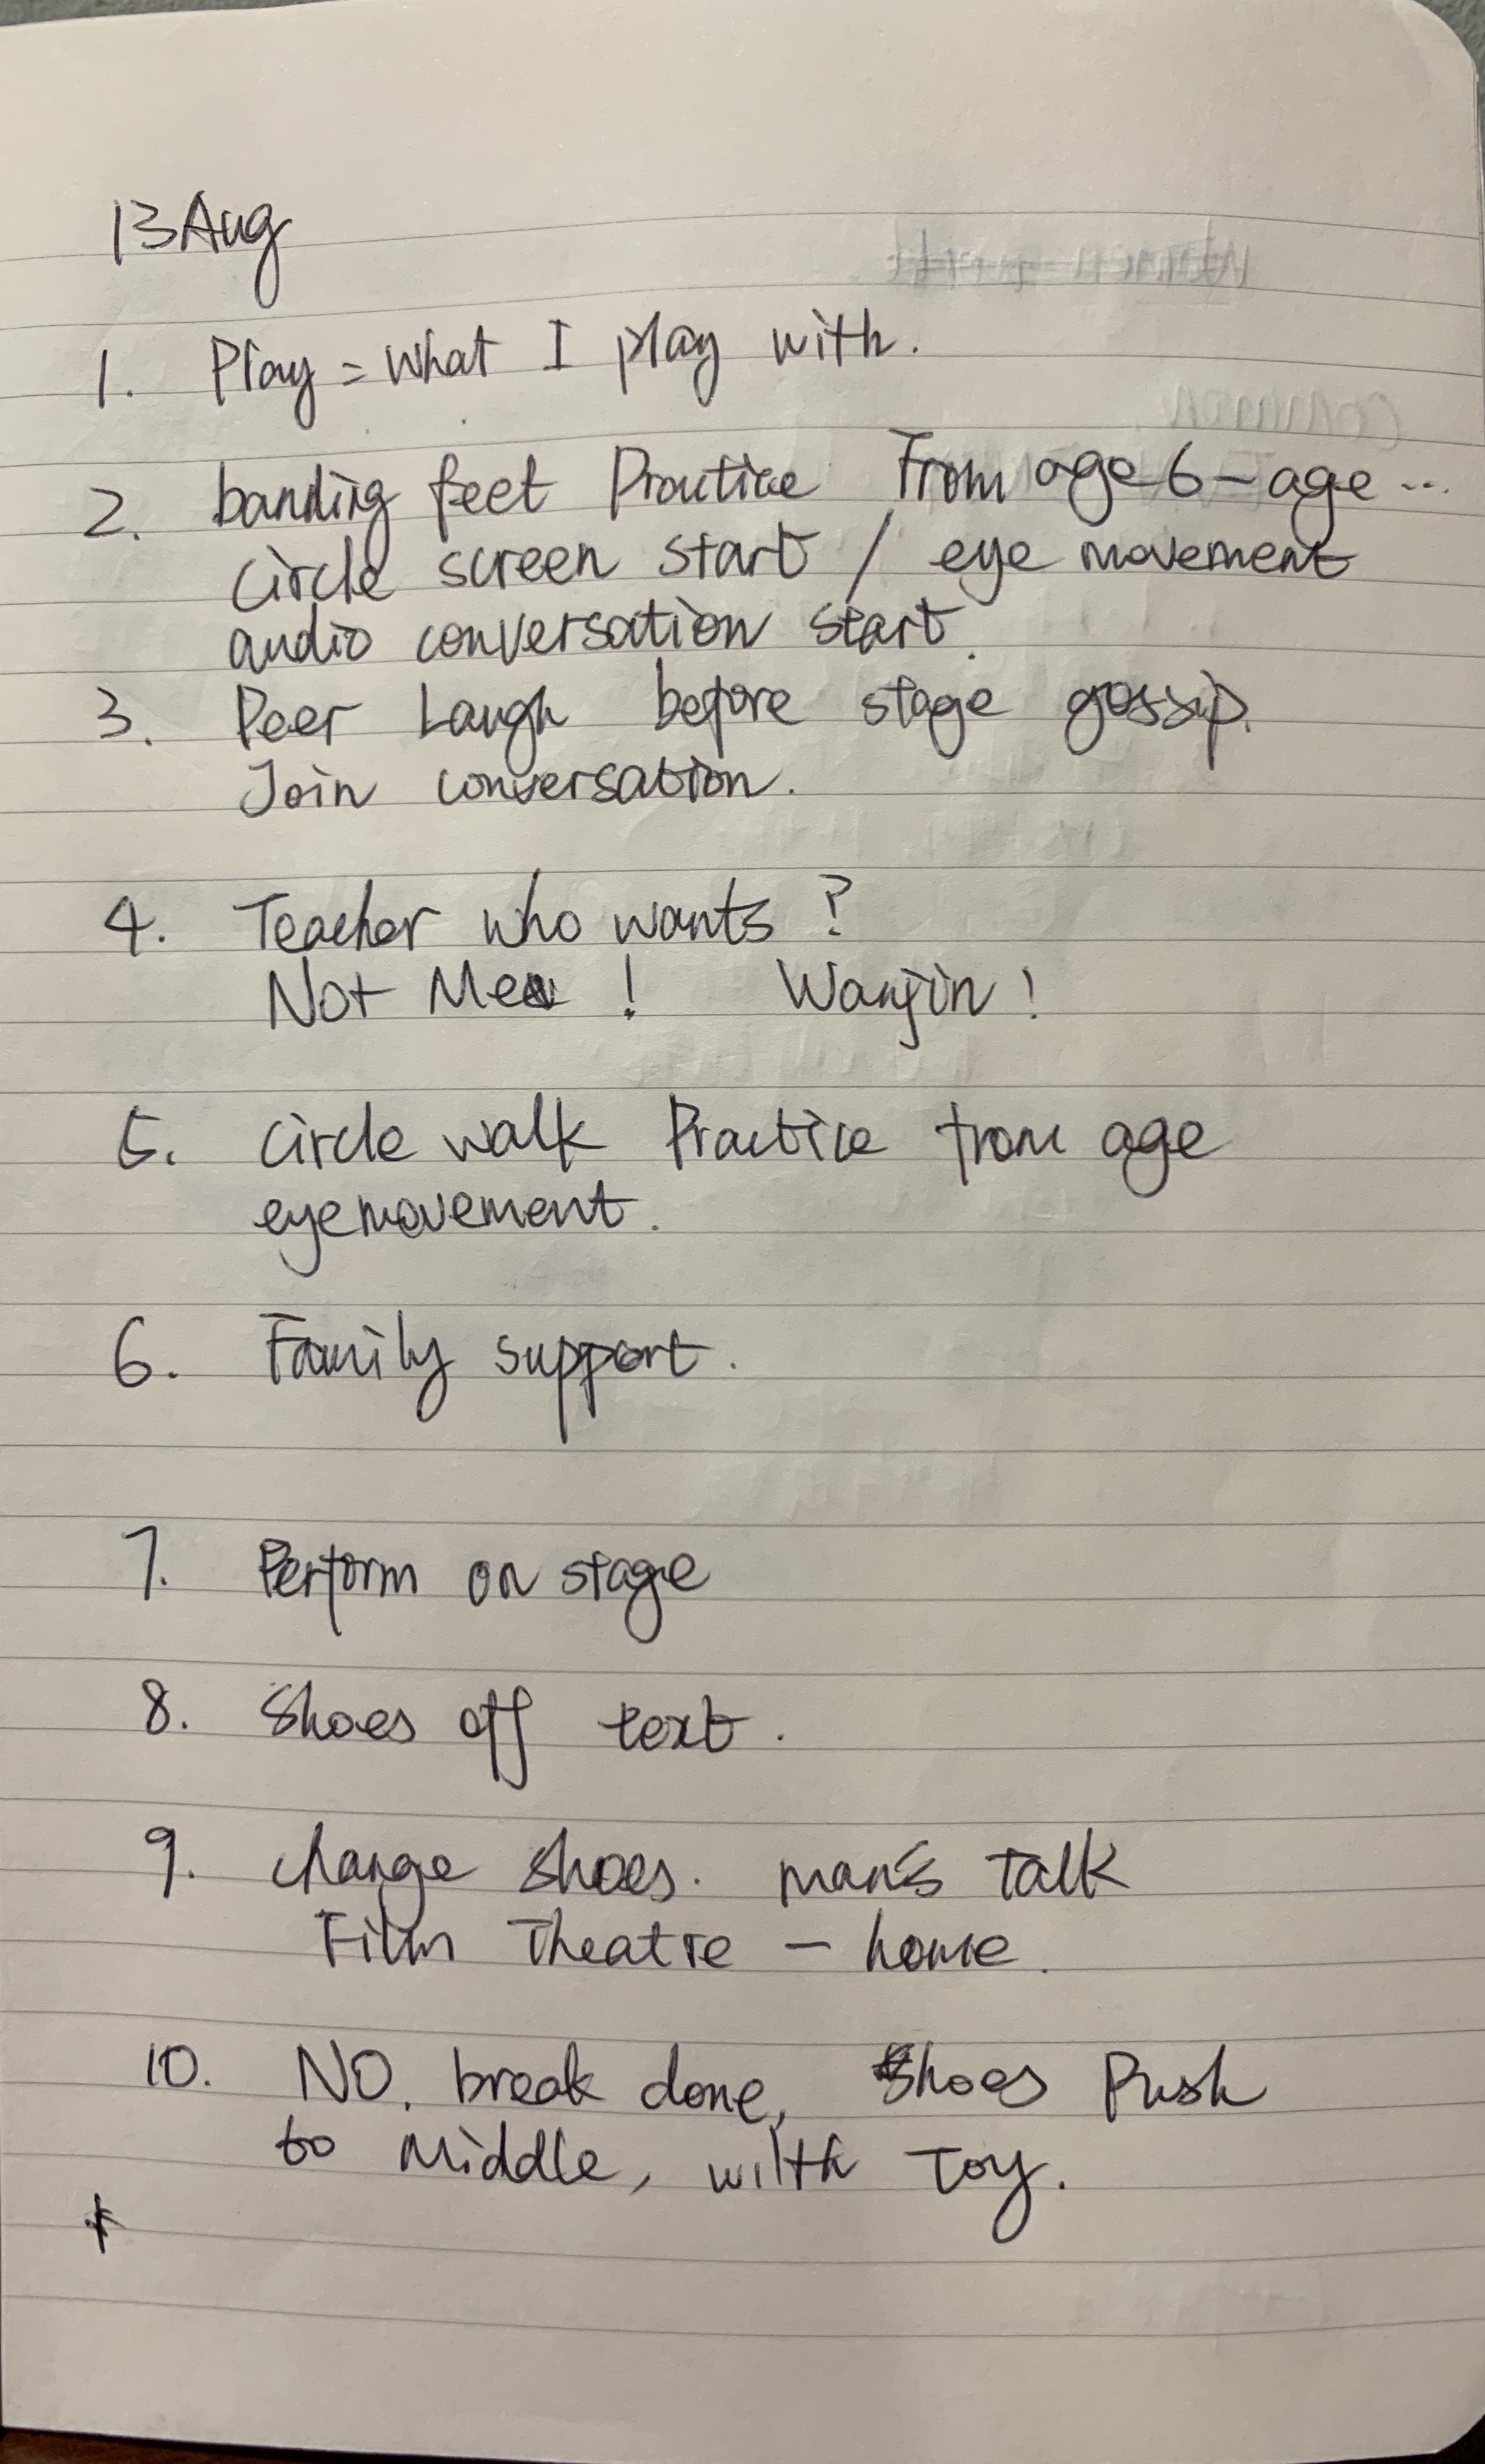 13 Aug
1. Play = what I play with.
2. banding feet Practice From age 6 - age ...
circle screen start / eye movement
audio conversation start.
3. Peer Laugh before stage gossip.
Join conversation.
4. Teacher who wants ?
Not Men ! Wanjin !
5. circle walk Practice from age
eyemovement.
6. Family support.
7. Perform on stage
8. Shoes off text.
9. change shoes. man's talk
Film Theatre - home.
10. NO. break done, Shoes Push
to Middle, wilth Toy.